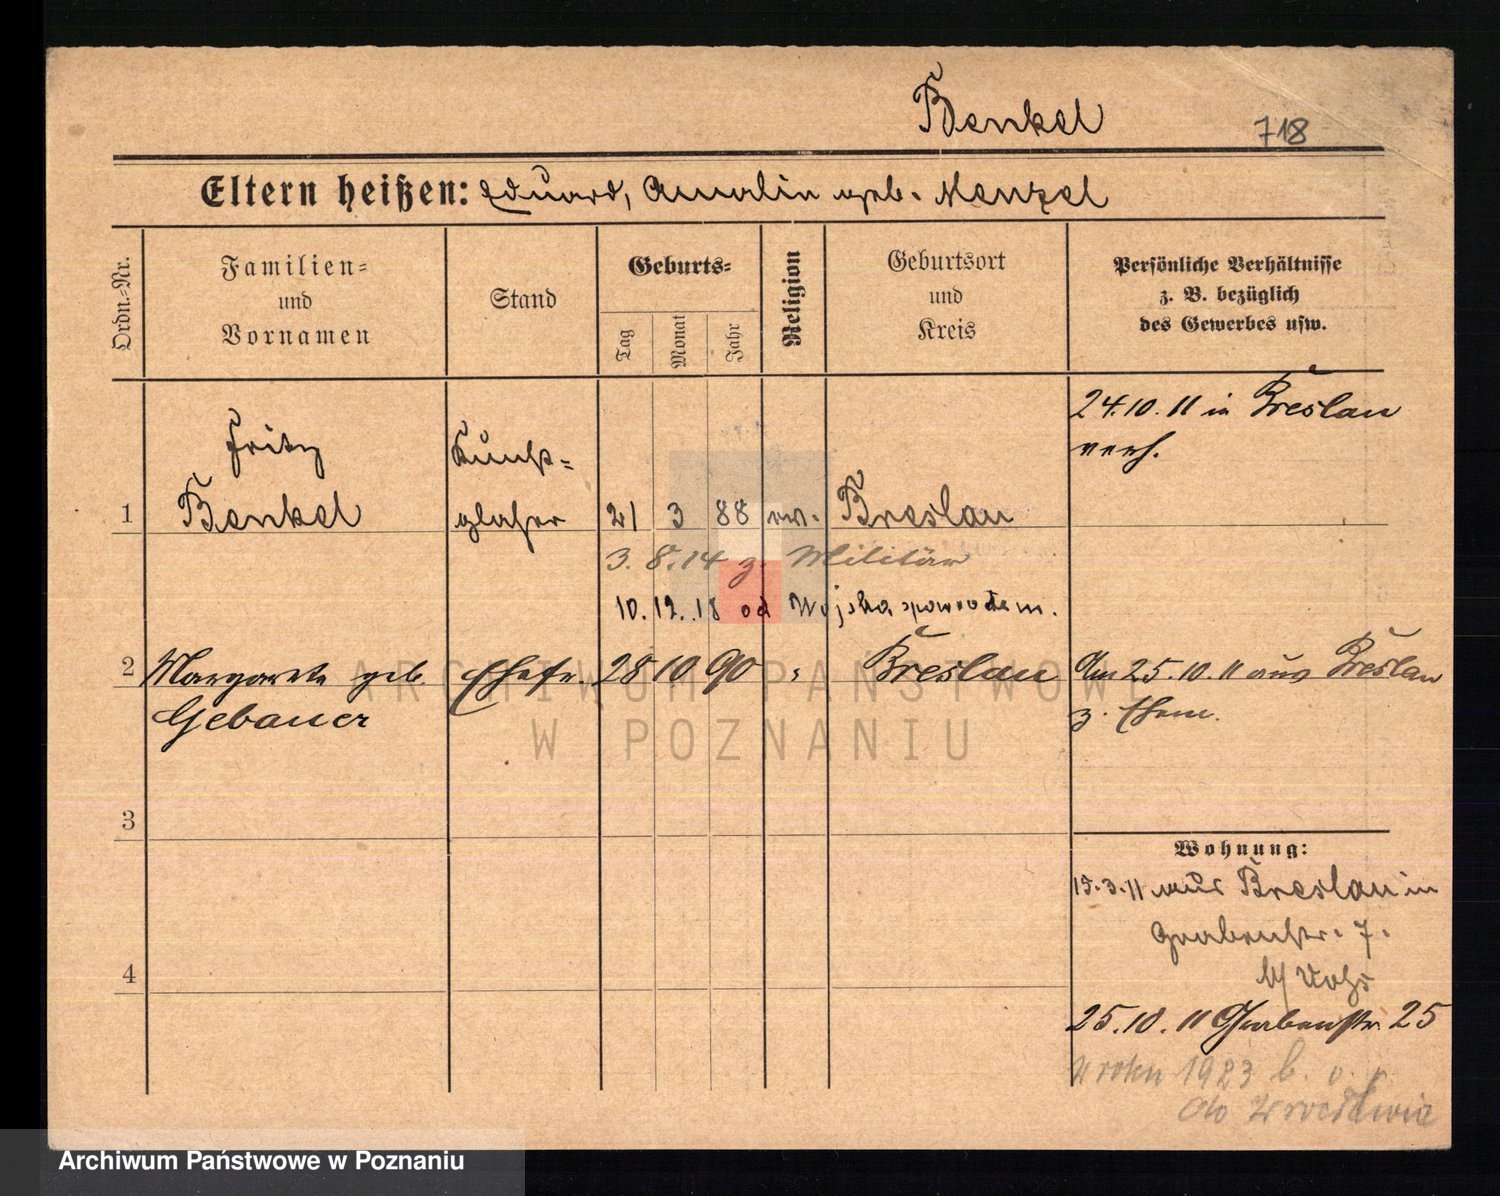 Benkel
718
Eltern heißen: Eduard, Amalin geb. Menzel
Ordn.=Nr.
Familien=
und
Vornamen
Stand
Geburts=
Tag
Monat
Jahr
Religion
Geburtsort
und
Kreis
Persönliche Verhältnisse
z. B. bezüglich
des Gewerbes usw.
24.10.11 in Breslau
verh.
Fritz
Kunst=
1 Benkel glaser 21 3 88 ev. Breslau
3. 8. 14 z. Militär
10. 12. 18 od Wojska powrotem.
2 Margarete geb. Ehefr. 28 10 90 " Breslau
Gebauer
Am 25.10.11 aus Breslau
z. Ehem.
3
4
Wohnung:
15.3.11 aus Breslau in
Grabenstr. 7.
b/
25.10.11 Grabenstr. 25
w roku 1923
do Wrocławia
ARCHIWUM PAŃSTWOWE
W POZNANIU
Archiwum Państwowe w Poznaniu